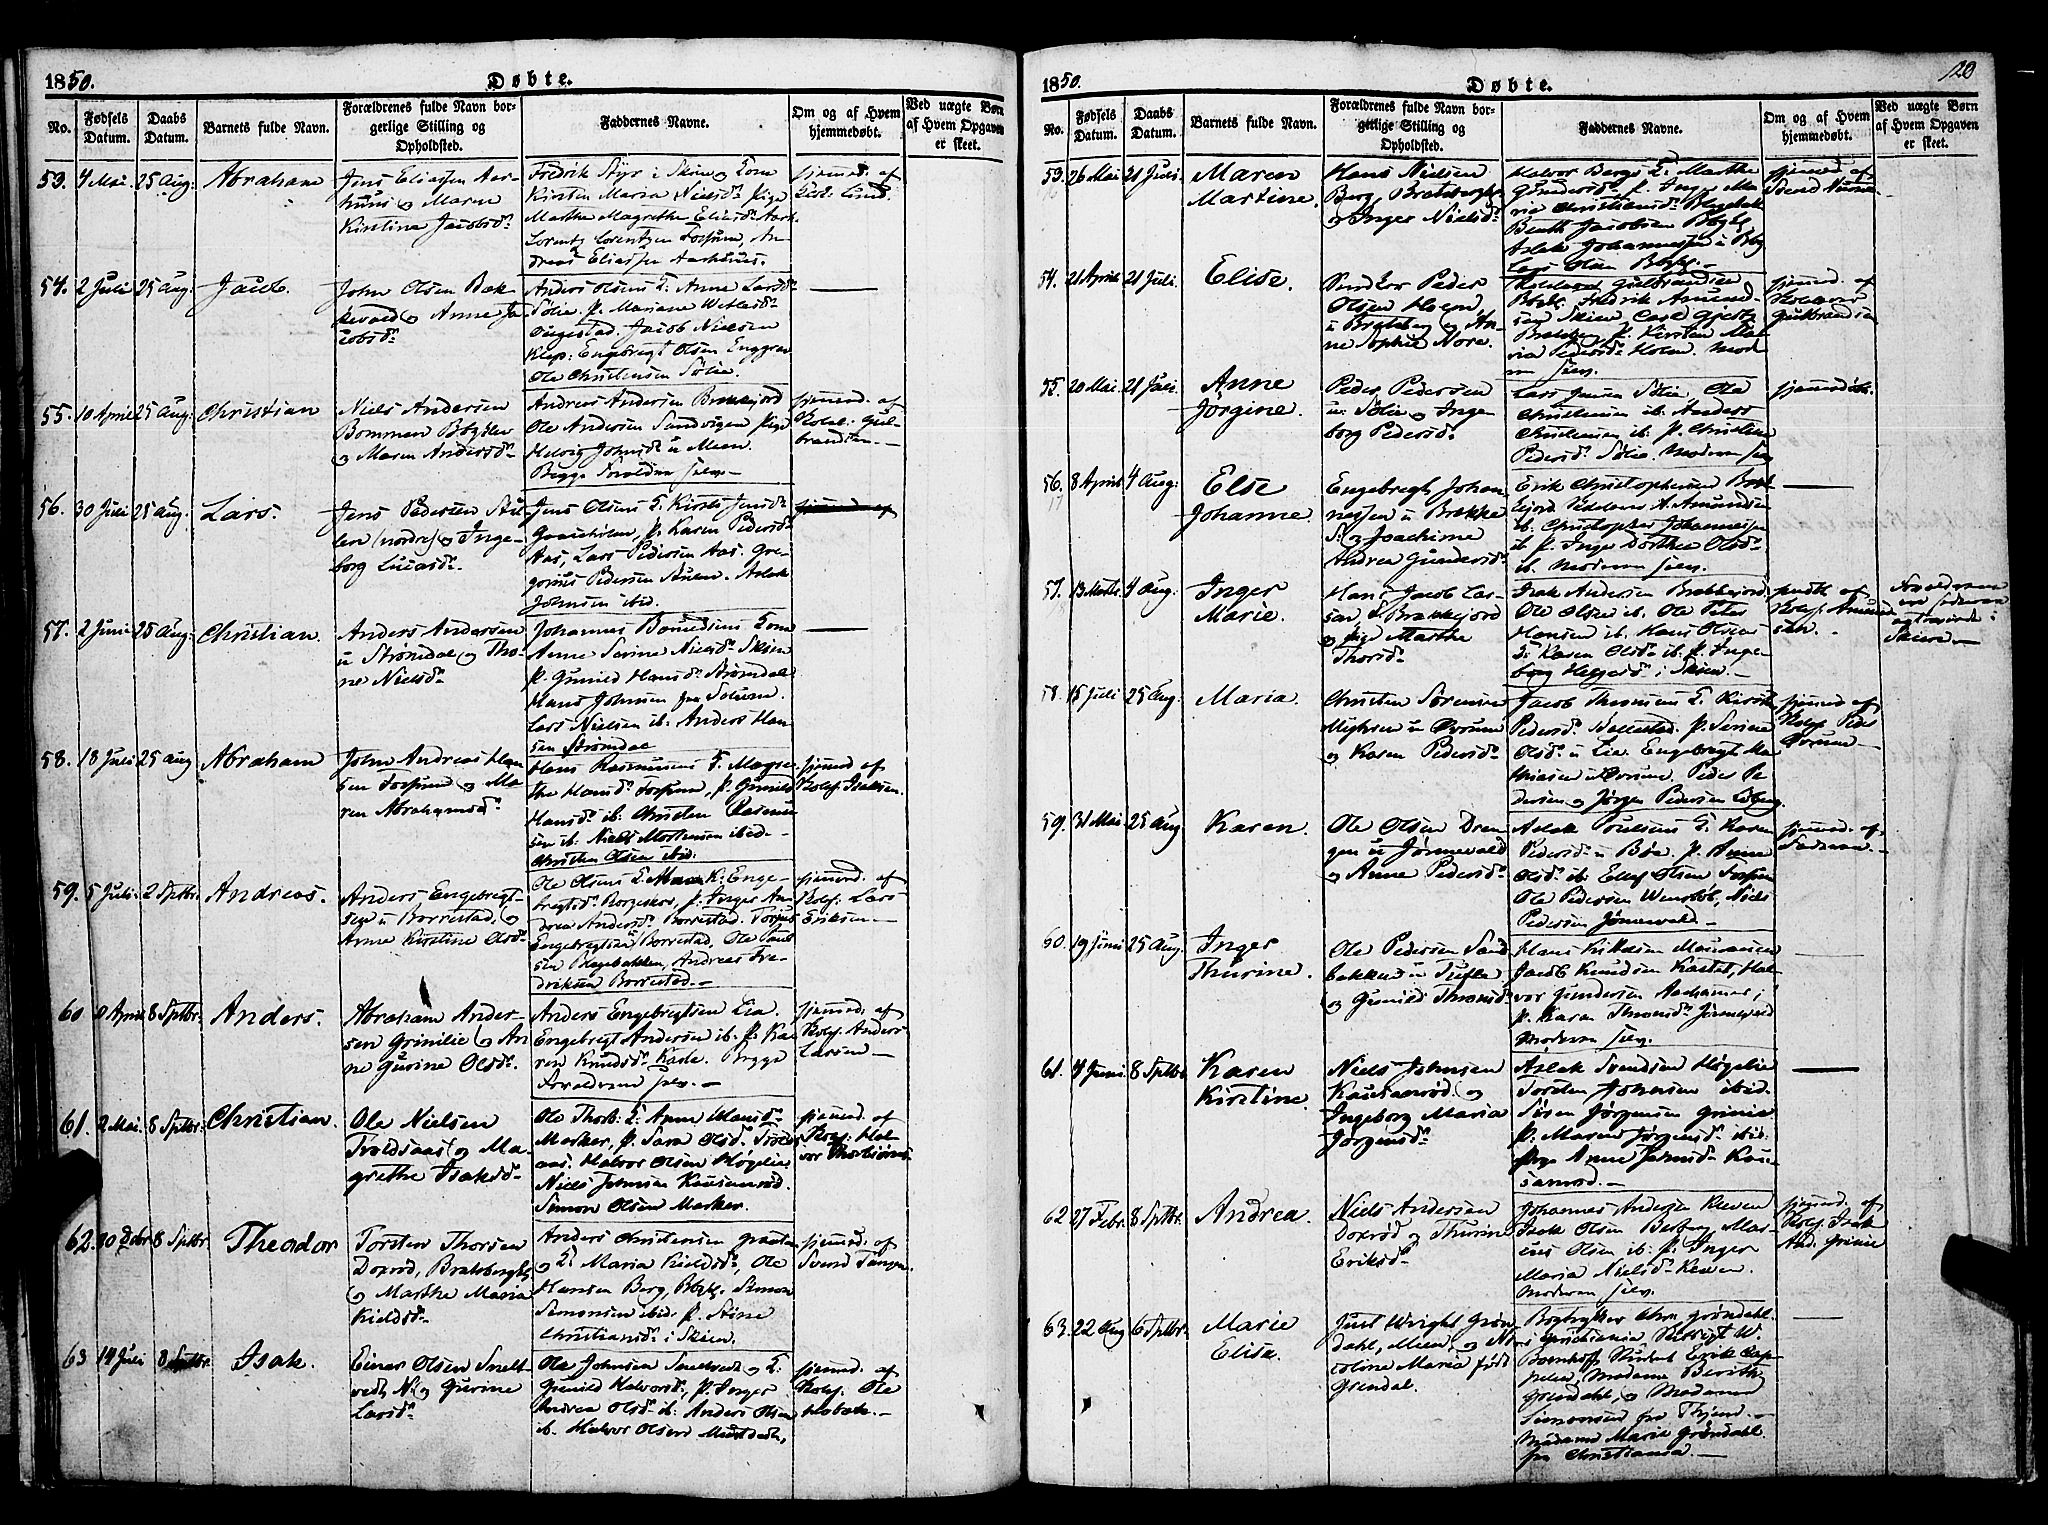 1850.
Døbte.
No.
Fødsels Datum.
Daabs Datum.
Barnets fulde Navn.
Forældrenes fulde Navn bor-
gerlige Stilling og
Opholdsted.
Faddernes Navne.
Om og af Hvem
hjemmedøbt.
Ved uægte Børn
af Hvem Opgaven
er skeet.
53. 4 Mai. 25 Aug: Abraham
Jens Eliassen Aar-
huus og Maren
Kirstine Jacobsd.
Fredrik Styr i Skien
Kirsten Maria Nielsd. Pige
Marthe Magrethe Eliasd.
Lorentz Lorentzen Fossum, An-
dreas Eliassen Aarhuus.
hjemmed. af
54. 2 Juli 25 Aug: Jacob
John Olsen Bak-
kevold og Anne Ja-
cobsd.
Anders Olsens E. Anne Larsd.
Sølie. P. Mariane
Jacob Nielsen
Klep: Engebregt Olsen Enggrav
Ole Christensen Sølie.
55. 10 April 25 Aug: Christian
Niels Andersen
Bommen Bbgklev
og Maren Andersd.
Andreas Andersen
Ole Andersen Sandvigen Pige
Helvig Johnsd. u Meen.
Begge Foraldrene selv.
hjemmed. af
Kolbj: Gul-
brandsen.
56. 30 Juli 25 Aug. Lars.
Jens Pedersen
(nordre) og Inge-
borg Lucasd.
Jens Olsens E. Kirsti Jensd.
P. Karen Pedersd.
Aas, Lars Pedersen Aas. Gre-
gorius Pedersen Auen. Aslak
Johnsen ibid.
57. 2 Juni 25 Aug: Christian.
Anders Andersen
u Strømdal og Tho-
ne Nielsd.
Johannes
Anne Serine Nielsd. Skien
P. Gunild Hansd. Strømdal
Hans Johnsen fra Solum
Lars Nielsen ib: Anders Han-
sen Strømdal
58. 18 Juli 25 Aug Abraham
John Andreas Han-
sen Fossum og Ma-
ren Abrahamsd.
Hans Rasmusens E. Magre-
the Hansd. Fossum, P. Gunild
Hansd. ib: Christen Rasmus-
sen ib. Niels Mortensen ibid.
Christen Olsen ibid.
hjemmed. af
Kolbj. Isaksen.
59. 5 Juli 2 Sptbr. Andreas.
Anders Engebregt-
sen u Borrestad, og
Anne Kirstine Olsd.
Ole Olsens E. Maren K. Enge-
bregtsd. Borgeskov, P. Inger An-
drea Andersd. Borrestad. Torjus
Engebregtsen Borrestad, Ole Poul-
sen Bagebakken, Andreas Fre-
driksen Borrestad.
hjemmed. af
Kolbj. Lars
Eriksen.
60 9 April 8 Sptbr: Anders.
Abraham Ander-
sen Grinilie og An-
ne Gurine Olsd.
Anders Engebregtsen Lia.
Engebregt Andersen ib. P. Ka-
ren Knudsd. Kaste. Begge
Foraldrene selv.
hjemmed. af
Kolbj. Anders
Larsen
61. 2 Mai. 8 Sptbr. Christian.
Ole Nielsen
Troldsaas og Ma-
grethe Isaksd.
Ole Thorb: E. Anne Hansd.
Marker, P. Sara Olsd.
Halvor Olsen Høgelie
Niels Johnsen Kausanrød.
Simon Olsen Marker.
hjemmed. af
Kolbj: Hal-
vor Thorbjørns.
62. 30 Dcbr 8 Sptbr Theodor
Torsten Thorsen
Doxrød, Bratsbergkl.
og Marthe Maria
Kieldsd.
Anders Christensen Graaten
og E. Maria Kieldsd. Ole
Hansen Berg, Bbgkl. Simon
Simonsen ibid. P. Stine
Christiansd. i Skien.
hjemmed. af
Svend Tangen.
63 14 Juli 8 Sptbr. Isak.
Einar Olsen Snelt-
vedt, N. og Gurine
Larsd.
Ole Johnsen Sneltvedt og E.
Gunild Halvorsd. P. Inger
Andrea Olsd. ib: Anders Olsen
ib. Halvor Olsen
hjemmed. af
Kolbj. Ole
Hobæk.
1850.
Døbte.
120
No.
Fødsels Datum.
Daabs Datum.
Barnets fulde Navn.
Forældrenes fulde Navn bor-
gerlige Stilling og
Opholdsted.
Faddernes Navne.
Om og af Hvem
hjemmedøbt.
Ved uægte Børn
af Hvem Opgaven
er skeet.
53. 26 Mai 21 Juli. Maren
Martine.
Hans Nielsen
Berg, Bratsbergkl.
og Inger Nielsd.
Halvor Bergs E. Marthe
Gundersd. P. Inger Ma-
rie Christiansd.
Benth Jacobsen Bbgkl.
Aslak Johannessen u Bbg
Lars Olsen Bbgkl.
hjemmed. af
54. 21 April 21 Juli. Elise.
Peder
Olsen Holm
u Bratsberg og An-
ne Sophie Nore.
Gulbrandsen
Bbgkl. Fredrik Amund-
sen Skien, Carl
Bratsberg, P. Kirsten Ma-
ria Pedersd. Holm. Mod-
ren selv.
hjemmed. af
Gulbrandsen
55. 20 Mai. 21 Juli. Anne
Jørgine.
Peder Pedersen
u. Sølie og Inge-
borg Pedersd.
Lars Jensen Sølie, Ole
Christensen ib. Anders
Christensen ib. P. Christine
Pedersd. Sølie. Moderen selv
hjemmedøbt.
56. 8 April 4 Aug: Else
Johanne.
Engebregt Johan-
nessen u Brække
S. og Joachime
Andrea Gundersd.
Erik Christophersen
A. Amundsen
ib. Christopher Johannessen
ib P. Inger Dorthea Olsd.
ib. Moderen selv.
57. 13 Martz. 4 Aug: Inger
Marie.
Hans Jacob Lar-
sen, S. Brækkejord
og Pige Marthe
Thorsd.
Isak Andersen Brækkejord
Ole Olsen ib. Ole Peter
Hansen ib. Hans Olsens
E. Karen Olsd. ib. P. Inge-
borg i Skien.
af
Kolbj. Amund-
sen.
Foraldrene
58. 15 Juli 25 Aug: Maria.
Christen Sørensen
u Øvrum
og Karen Pedersd.
Jacob Thomsens E. Kirsti
Pedersd. Ballestad. P. Serine
Olsd. u Lia. Engebregt Ma-
thiasen u Øvrum. Peder Pe-
dersen og Jørgen Pedersen
hjemmed af
Kolbj. Peder
Øvrum
59. 31 Mai 25 Aug Karen.
Ole Olsen Dren-
gen u Jønnevald
og Anne Pedersd.
Aslak Poulsens E. Karen
Pedersd. u Bøe. P. Anne
Olsd. ib. Ellef Olsen Fossum
Ole Pedersen Venstøb, Niels
Pedersen Jønnevald.
hjemmed. af
Faderen.
60. 19 Juni 25 Aug: Inger
Thurine.
Ole Pedersen Sand-
bakken u Tufte
og Gunild Thomsd.
Hans Kittilsen
Jacob Knudsen Kastet, Hal-
vor Gundersen Aashammer,
P. Karen Thomsd. Jønnevald
Moderen selv.
61. 4 Juni. 8 Sptbr Karen
Kirstine.
Niels Johnsen
Kausanrød og
Ingeborg Maria
Jørgensd.
Aslak Svendsen Høgelie
Torsten Johnsen ibid.
Søren Jørgensen Grinie
P. Maren Jørgensd. ibid:
Pige Anne Johnsd. Kau-
sanrød.
62 27 Febr. 8 Sptbr. Andrea.
Niels Andersen
Doxrød og Thurine
Eriksd.
Johannes Andersen Kleven
Isak Olsen Berberg Mar-
ius Olsen ib: P. Inger
Maria Nielsd. Kleven.
Moderen selv.
hjemmed. af
Kolbj. Isak
And. Grinie
63. 22 Aug 6 Sptbr. Marie
Elise.
Just Wright Grøn-
dahl, Meen, og Ni-
coline Maria født
Grendal.
Bogtrykker Chr. Grøndahl
i Christiania
Student Erik Cap-
pelen, Madame Berith
Grendahl, og Madame
Simonsen fra
Madame Marie Grøndahl
fra Christiania.